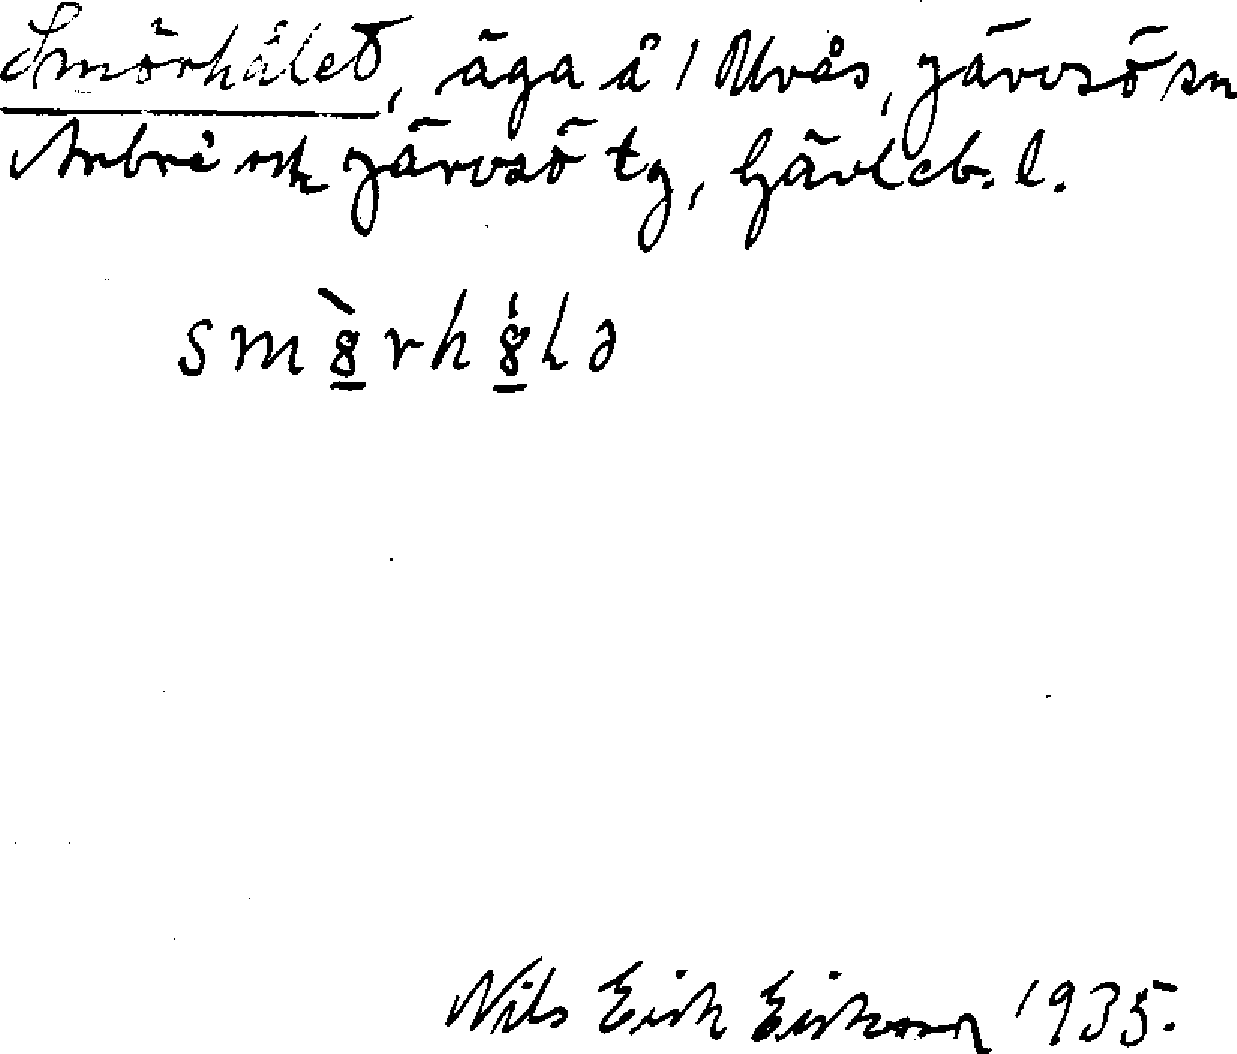 Smörhålet, äga å 1 Ulvås, Järvsö sn
Arbrå och Järvsö tg, Gävleb. l.
smö̀rhǻlə
Nils Erik Eriksson 1935.